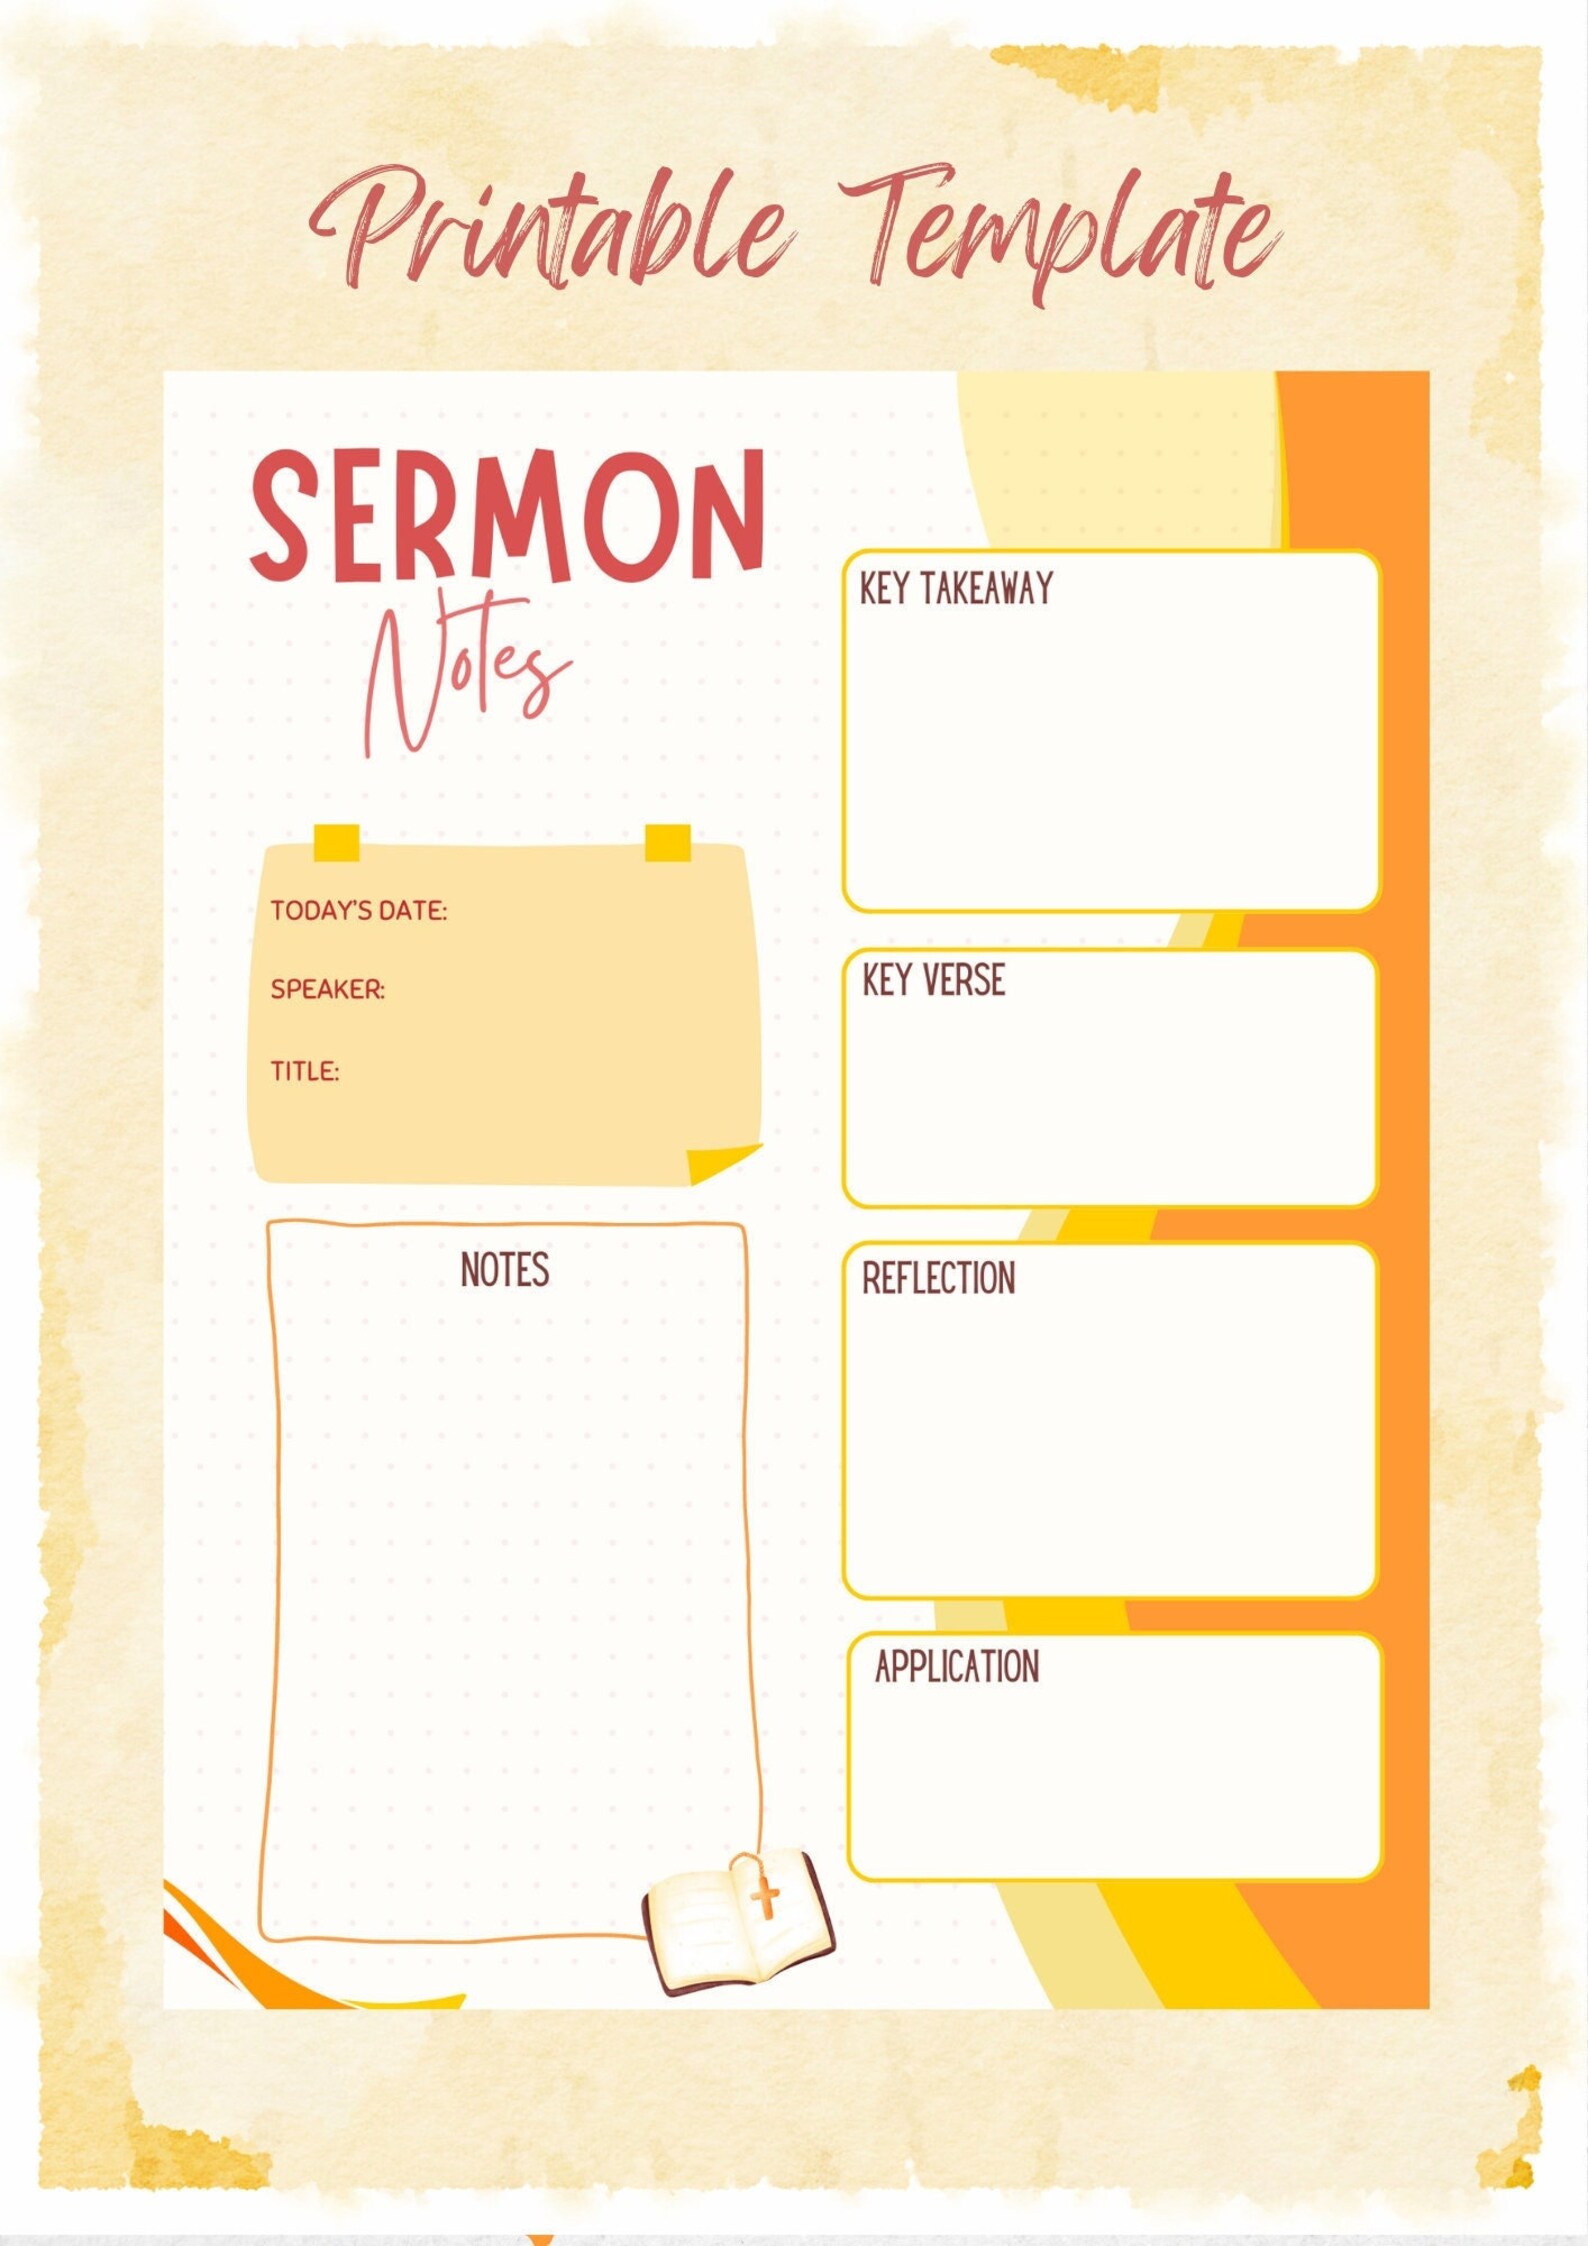 Printable Template
SERMON
Notes
TODAY'S DATE:
SPEAKER:
TITLE:
NOTES
KEY TAKEAWAY
KEY VERSE
REFLECTION
APPLICATION